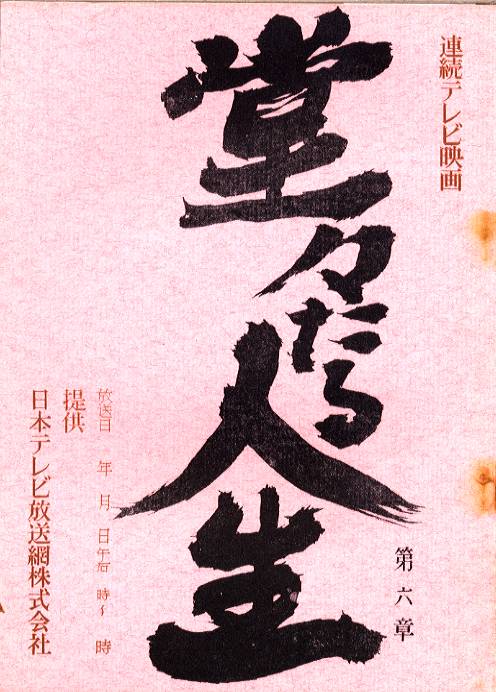 連続テレビ映画
堂々たる人生
第六章
放送日 年 月 日午后 時〜 時
提供
日本テレビ放送網株式会社